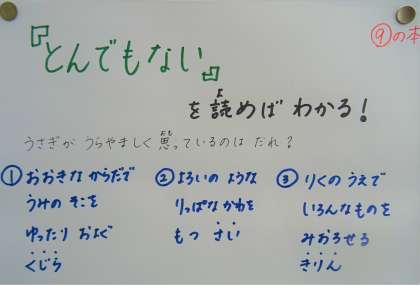 ⑨の本
『とんでもない』
を読めば わかる!
よ
うさぎが うらやましく思っているのは だれ?
おも
① おおきな からだで
うみの そこを
ゆったり およぐ
くじら
② よろいの ような
りっぱな かわを
もつ さい
③ りくの うえで
いろんなものを
みおろせる
きりん